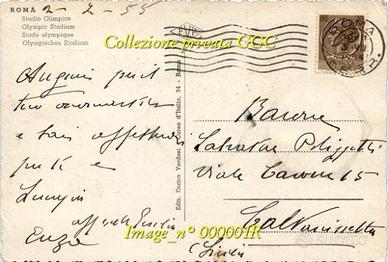 ROMA
2-2-55
Stadio Olimpico
Olympic Stadium
Stade olympique
Olympisches Stadium
Collezione privata GGC
ROMA
Auguri per il
tuo onomastico
e cari affettuosi
per te e
Luigi
Enzo
Ediz. Enrico Verdesi Corso d'Italia, 34 - Roma
Barone
Salvatore
Viale Cavour 15
Caltanissetta
Image_n° 000001R